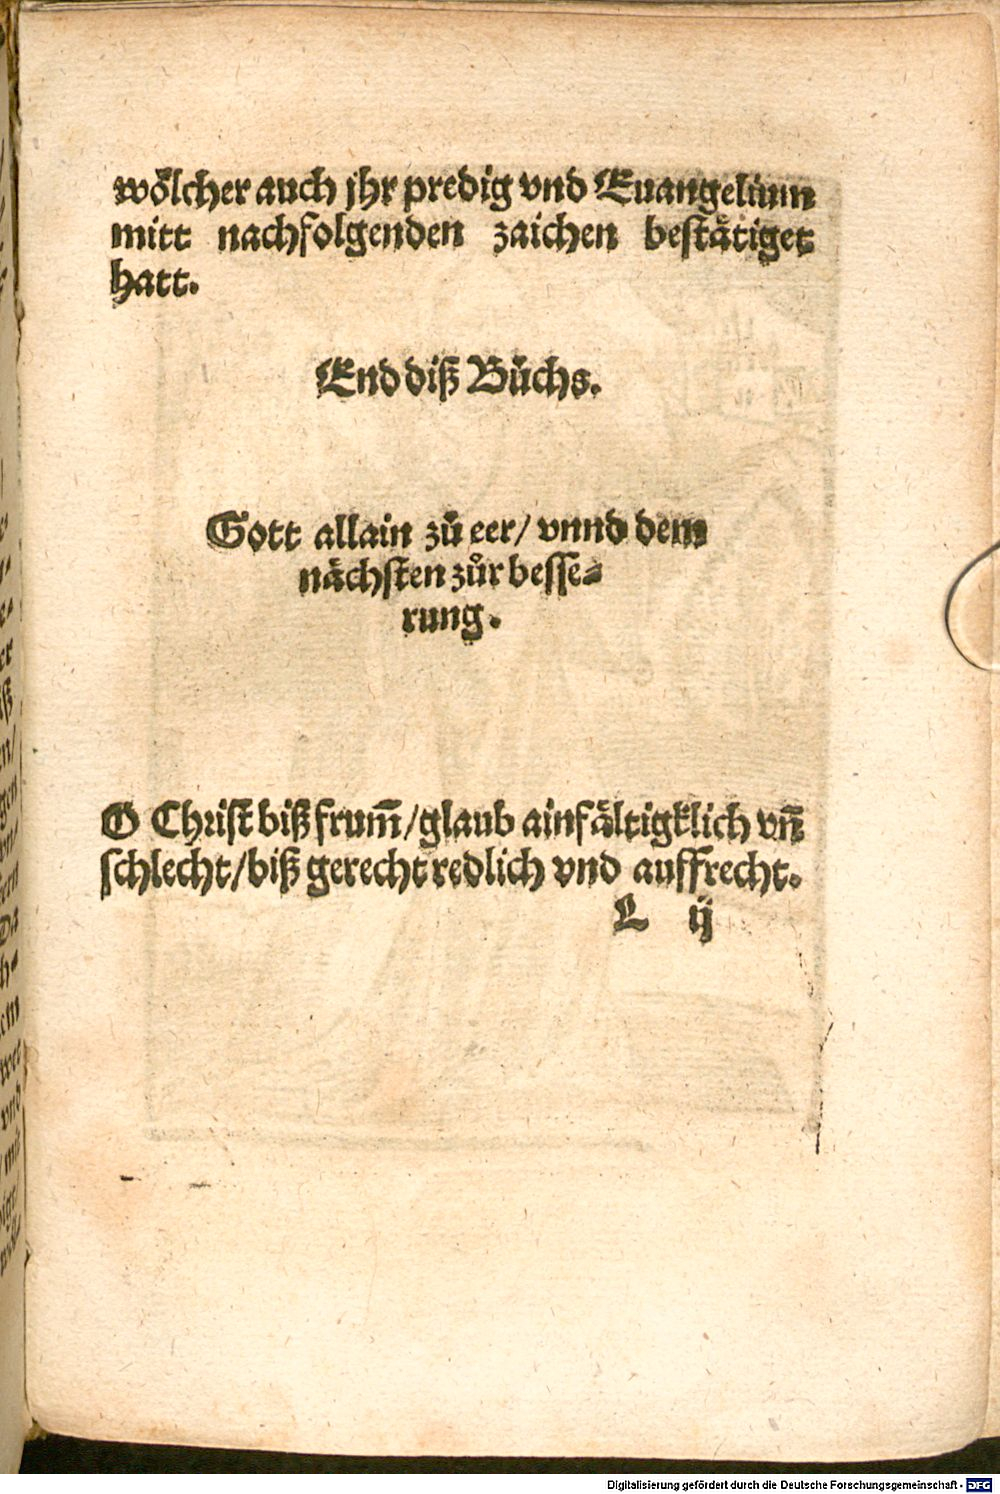 woͤlcher auch jhr predig vnd Euangelium
mitt nachfolgenden zaichen bestaͤtiget
hatt.
End diß Buͤchs.
Gott allain zuͦ eer/ vnnd dem
naͤchsten zuͦr besse⸗
rung.
O Christ biß frum̃/glaub ainfaͤltigklich vñ
schlecht/biß gerecht redlich vnd auffrecht.
L ij
Digitalisierung gefördert durch die Deutsche Forschungsgemeinschaft - DFG